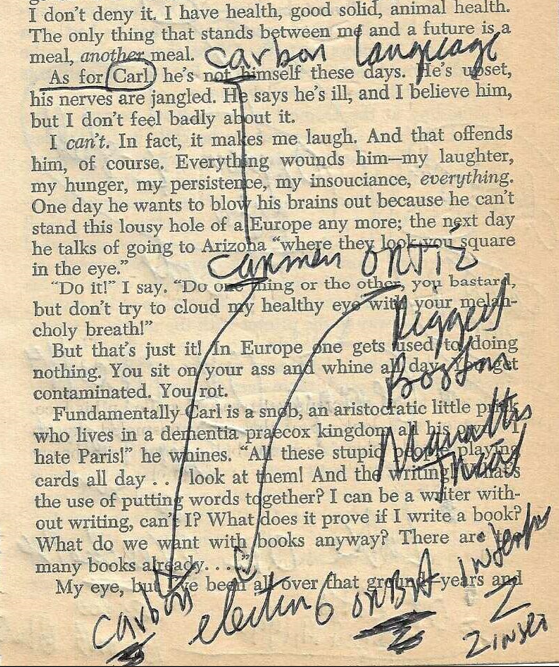 I don't deny it. I have health, good solid, animal health.
The only thing that stands between me and a future is a
meal, another meal.
carbon language
As for Carl, he's not himself these days. He's upset,
his nerves are jangled. He says he's ill, and I believe him,
but I don't feel badly about it.
I can't. In fact, it makes me laugh. And that offends
him, of course. Everything wounds him—my laughter,
my hunger, my persistence, my insouciance, everything.
One day he wants to blow his brains out because he can't
stand this lousy hole of a Europe any more; the next day
he talks of going to Arizona "where they look you square
in the eye."
carmen ORTIZ
"Do it!" I say. "Do one thing or the other, you bastard,
but don't try to cloud my healthy eye with your melan-
choly breath!"
Biggest
But that's just it! In Europe one gets used to doing
nothing. You sit on your ass and whine all day. You get
contaminated. You rot.
Boston
Fundamentally Carl is a snob, an aristocratic little
who lives in a dementia praecox kingdom all his
hate Paris!" he whines. "All these stupid people playing
cards all day . . . look at them! And the writing!
the use of putting words together? I can be a writer with-
out writing, can't I? What does it prove if I write a book?
What do we want with books anyway? There are
many books already. . . ."
My eye, but I've been all over that ground—years and
carbon
electing 6 ORBA
Z
Z